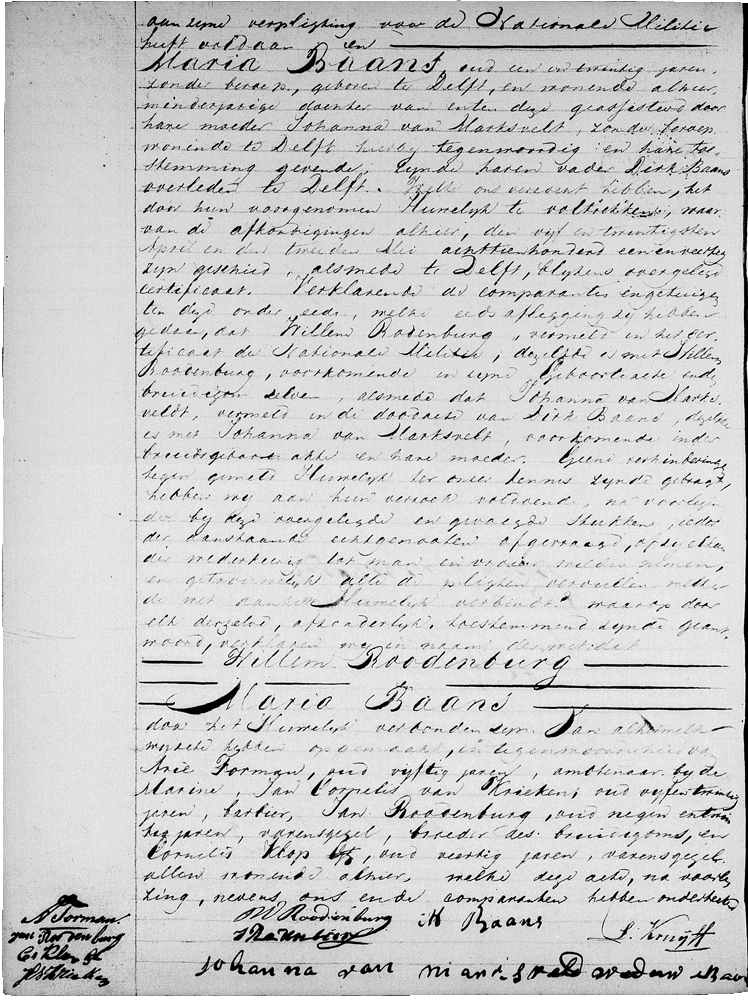 aan zijne verpligting voor de Nationale Militie
heeft voldaan en
Maria Baans, oud een en twintig jaren,
zonder beroep, geboren te Delft, en wonende alhier,
minderjarige dochter van en ten deze geassisteerd door
hare moeder Johanna van Marksvelt, zonder beroep
wonende te Delft hierbij tegenwoordig en hare toe-
stemming gevende, zijnde haren vader Dirk Baans
overleden te Delft. Welke ons verzocht hebben, het
door hun voorgenomen Huwelijk te voltrekken, waar
van de afkondigingen alhier, den vijf en twintigsten
April en den tweeden Mei achttienhonderd een en veertig
zijn geschied, alsmede te Delft, blijkens overgelegd
certificaat. Verklarende de comparanten en getuigen
ten deze onder eede, welke eedsaflegging zij hebben
gedaan, dat Willem Rodenburg, vermeld in het cer-
tificaat der Nationale Militie, dezelfde is met Willem
Roodenburg, voorkomende in zijne Geboorteacte en de
bruidegom zelven, alsmede dat Johanna van Marks-
veldt, vermeld in de doodacte van Dirk Baans, dezelfde
is met Johanna van Marksvelt, voorkomende in der
bruids geboorte akte en hare moeder. Geene verhindering
tegen gemeld Huwelijk ter onzer kennis zijnde gebragt,
hebben wij aan hun verzoek voldoende, na voorlezing
der bij deze overgelegde en gevoegde stukken, ieder
der aanstaande echtgenooten afgevraagd, of zij elkan-
der wederkeerig tot man en vrouw wilden nemen,
en getrouwelijk alle de pligten vervullen welke
de wet aan het Huwelijk verbindt? waarop door
elk derzelve, afzonderlijk, toestemmend zijnde geant-
woord, verklaren wij in naam der wet, dat
Willem Roodenburg
en
Maria Baans
door het Huwelijk verbonden zijn. Van al hetwelk
wij acte hebben opgemaakt, in tegenwoordigheid van
Arie Forman, oud vijftig jaren, ambtenaar bij de
Marine, Jan Cornelis van Krieken, oud vijf en twintig
jaren, barbier, Jan Roodenburg, oud negen en twin-
tig jaren, varensgezel, broeder des bruidegoms, en
Cornelis Klop, oud veertig jaren, varensgezel
allen wonende alhier, welke deze acte, na voorle-
zing, nevens ons en de comparanten hebben onderteekend
A Forman
Jan Roodenburg
W Roodenburg
M Baans
L. Kruyff
Johanna van Marksveld weduw Baans